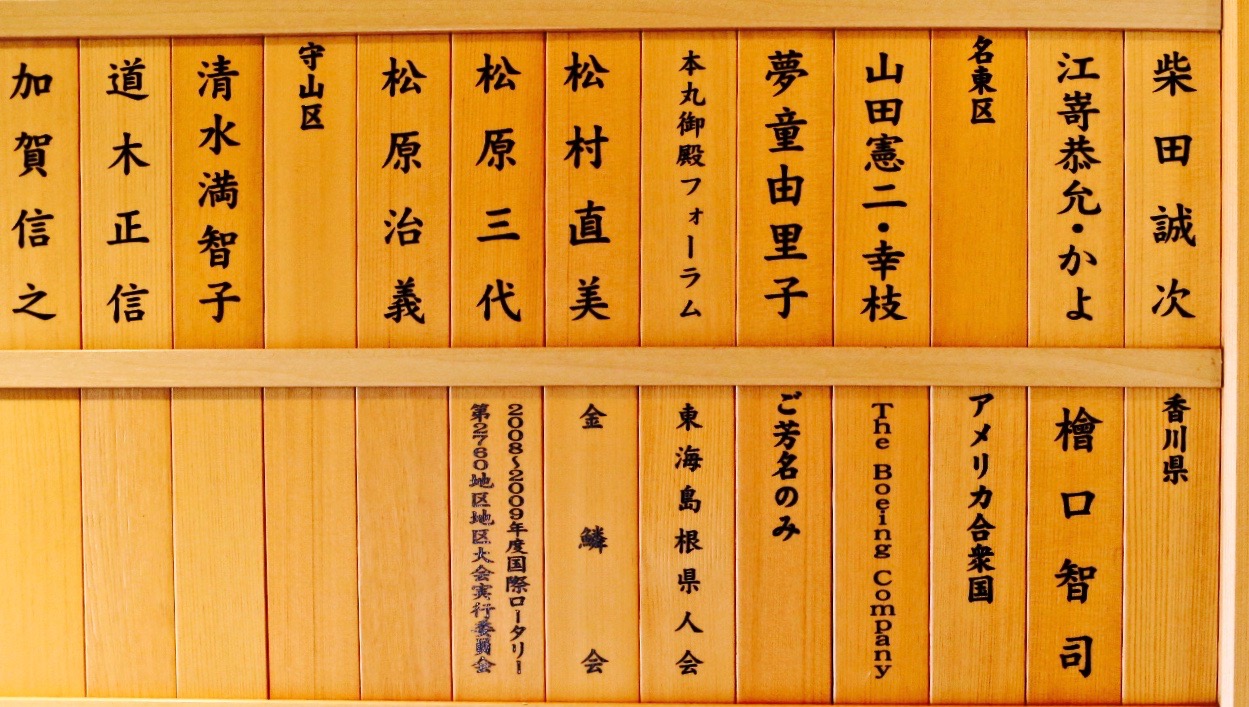 柴田誠次
江嵜恭允・かよ
名東区
山田憲二・幸枝
夢童由里子
本丸御殿フォーラム
松村直美
松原三代
松原治義
守山区
清水満智子
道木正信
加賀信之
香川県
檜口智司
アメリカ合衆国
The Boeing Company
ご芳名のみ
東海島根県人会
金鱗会
2008〜2009年度国際ロータリー
第2760地区地区大会実行委員会